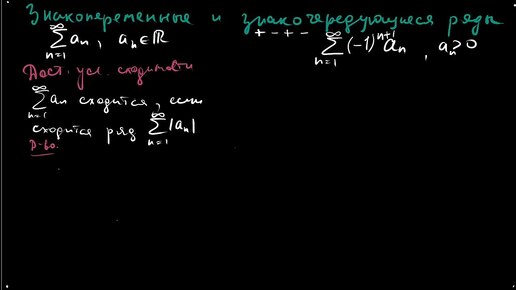 Знакопеременные и знакочередующиеся ряды
∑_{n=1}^{∞} aₙ, aₙ ∈ ℝ
+ − + −
∑_{n=1}^{∞} (−1)^{n+1} aₙ, aₙ > 0
Дост. усл. сходимости
∑_{n=1}^{∞} aₙ сходится, если
сходится ряд ∑_{n=1}^{∞} |aₙ|
Д-во.